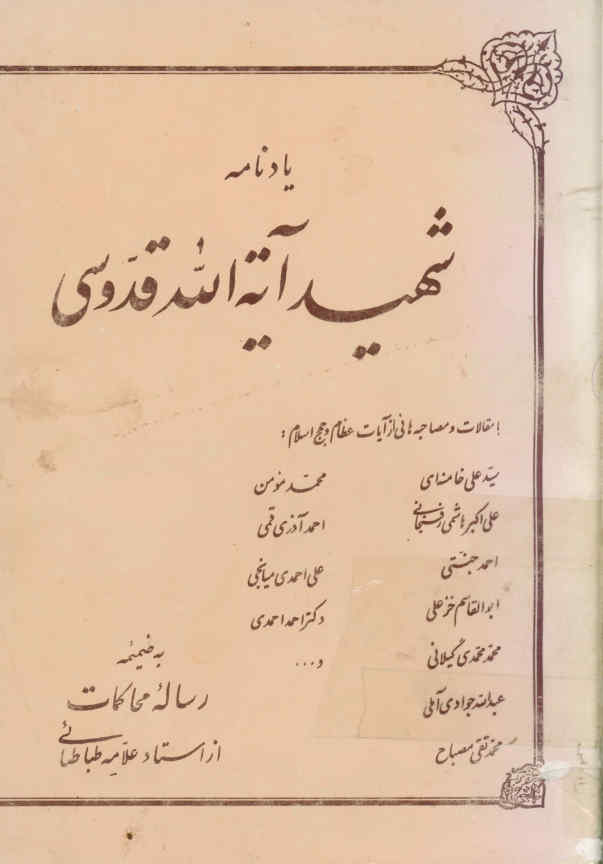 یادنامه
شهید آیة الله قدّوسی
با مقالات و مصاحبه هائی از آیات عظام و حجج اسلام:
سیّد علی خامنه‌ای
علی اکبر هاشمی رفسنجانی
احمد جنّتی
ابوالقاسم خزعلی
محمّد محمّدی گیلانی
عبدالله جوادی آملی
محمّد تقی مصباح
محمّد مؤمن
احمد آذری قمی
علی احمدی میانجی
دکتر احمد احمدی
و...
به ضمیمه
رسالهٔ محاکمات
از استاد علّامه طباطبائی